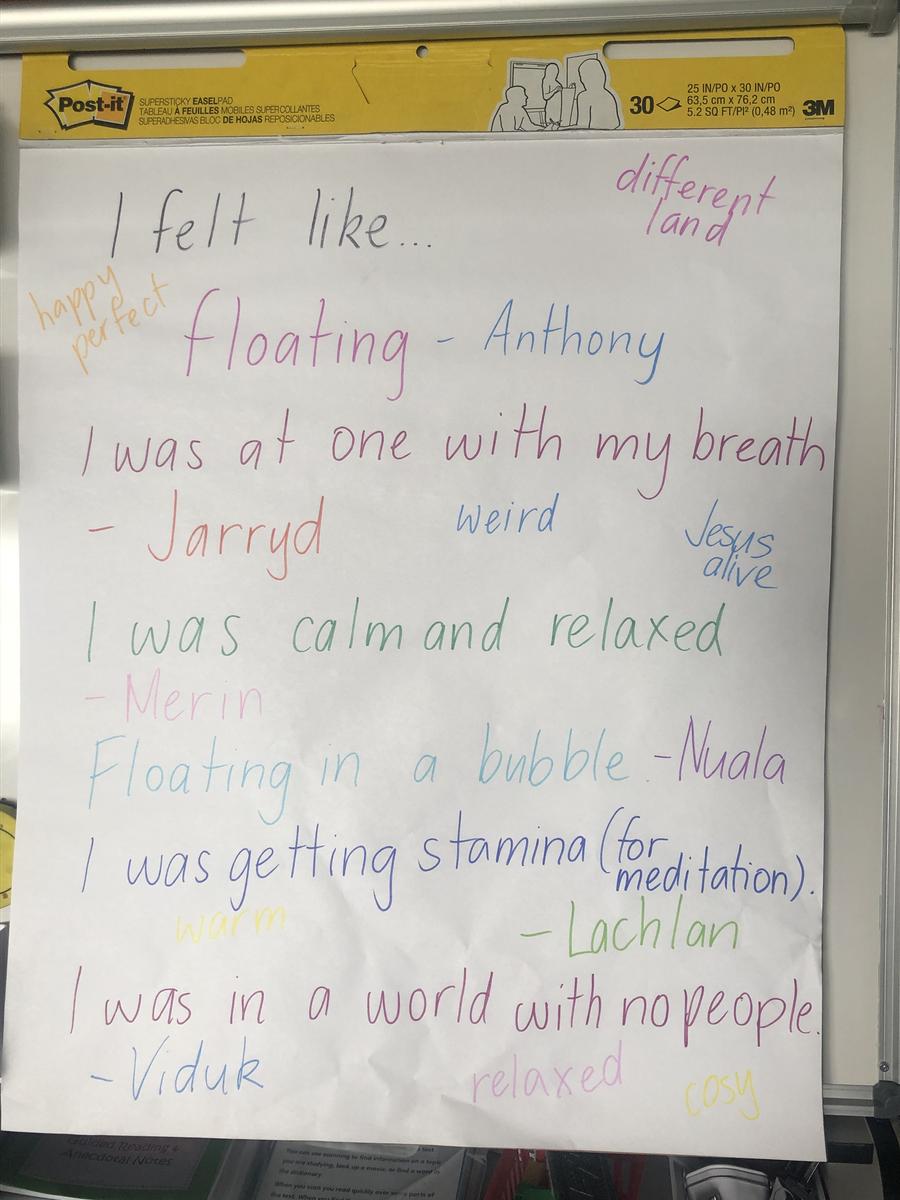 Post-it
SUPERSTICKY EASEL PAD
TABLEAU À FEUILLES MOBILES SUPERCOLLANTES
SUPERADHESIVAS BLOC DE HOJAS REPOSICIONABLES
30
25 IN/PO x 30 IN/PO
63,5 cm x 76,2 cm
5.2 SQ FT/PI² (0,48 m²)
3M
I felt like...
different
land
happy
perfect
floating - Anthony
I was at one with my breath
- Jarryd
weird
Jesus
alive
I was calm and relaxed
- Merin
Floating in a bubble - Nuala
I was getting stamina (for
meditation).
warm
- Lachlan
I was in a world with no people.
- Viduk
relaxed
cosy
Guided Reading +
Anecdotal Notes
you are studying, look up a movie, or find a word in
the dictionary
When you scan you read quickly over